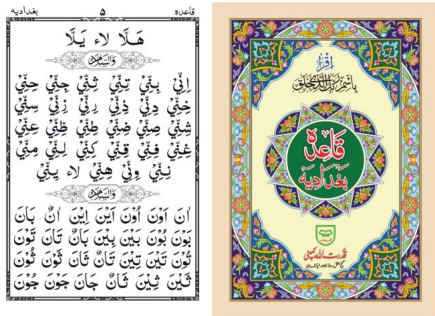 بغدادیہ ۵ قاعدہ
هَلَّا لاء يَلَّا
اِنِّيْ بِنِّيْ تِنِّيْ ثِنِّيْ جِنِّيْ حِنِّيْ
خِنِّيْ دِنِّيْ ذِنِّيْ رِنِّيْ زِنِّيْ سِنِّيْ
شِنِّيْ صِنِّيْ ضِنِّيْ طِنِّيْ ظِنِّيْ عِنِّيْ
غِنِّيْ فِنِّيْ قِنِّيْ كِنِّيْ لِنِّيْ مِنِّيْ
نِنِّيْ وِنِّيْ هِنِّيْ لاء يِنِّيْ
اٰن اَوْن اُوْن اَيْن اِيْن انٌ بَان
بَوْن بُوْن بَيْن بِيْن بَانٌ تَان تَوْن
تُوْن تَيْن تِيْن تَانٌ ثَان ثَوْن ثُوْن
ثَيْن ثِيْن ثَانٌ جَان جَوْن جُوْن
اِقْرَاْ
بِاسْمِ رَبِّكَ الَّذِيْ خَلَقَ
قاعدہ
بغدادیہ
قدرت اللہ کمپنی